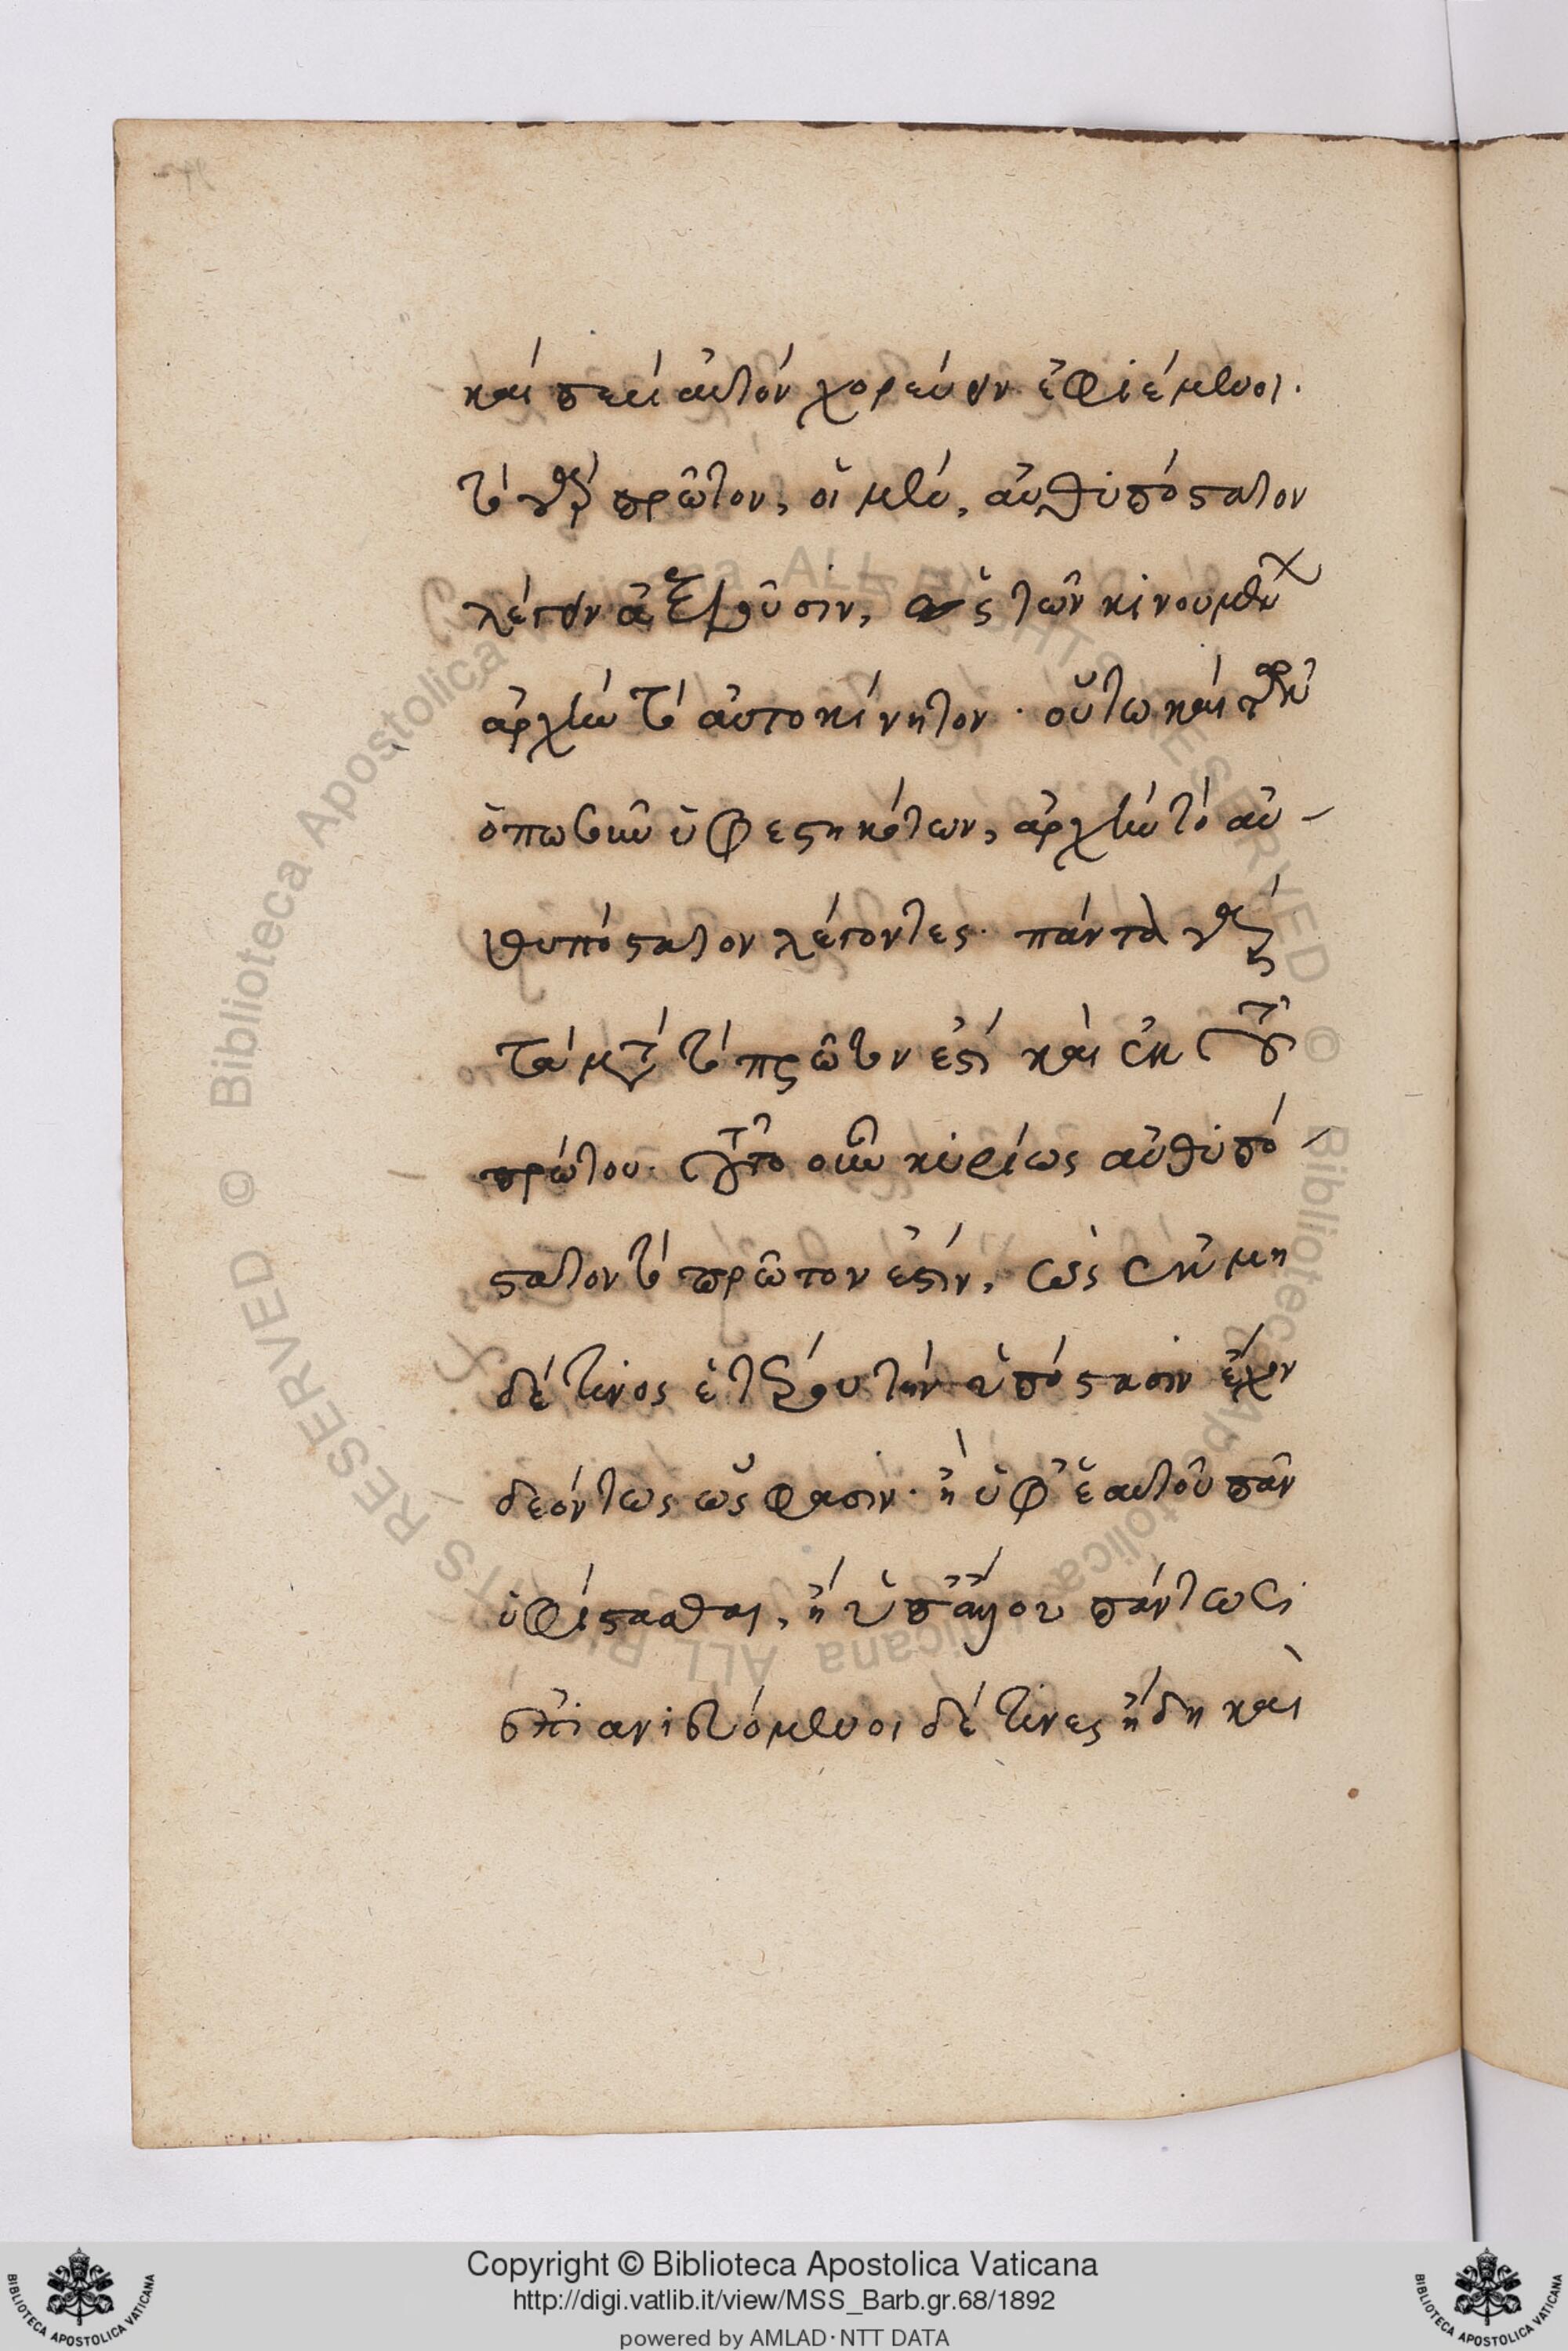 καὶ περὶ αὐτὸν χορεύειν ἐφιέμενοι.
τὸ γὰρ πρῶτον, οἱ μὲν, αὐθυπόστατον
λέγειν ἀξιοῦσιν, ὡς τῶν κινουμένων
ἀρχὴν τὸ αὐτοκίνητον· οὕτω καὶ τῶν
ὁπωσοῦν ὑφεστηκότων, ἀρχὴν τὸ αὐ-
θυπόστατον λέγοντες· πάντα γὰρ
τὰ μετὰ τὸ πρῶτον ἐστὶ καὶ ἐκ τοῦ
πρώτου. τοῦτο οὖν κυρίως αὐθυπό-
στατον τὸ πρῶτον ἐστὶν, ὡς ἐκ μη
δέ τινος ἑτέρου τὴν ὑπόστασιν ἔχον
δεόντως ὥς φασιν· ἢ ὑφ' ἑαυτοῦ πᾶν
ὑφίστασθαι, ἢ ὑπ' ἄλλου πάντως·
ἐπανιστάμενοι δέ τινες ἤδη καὶ
Copyright © Biblioteca Apostolica Vaticana
http://digi.vatlib.it/view/MSS_Barb.gr.68/1892
powered by AMLAD·NTT DATA